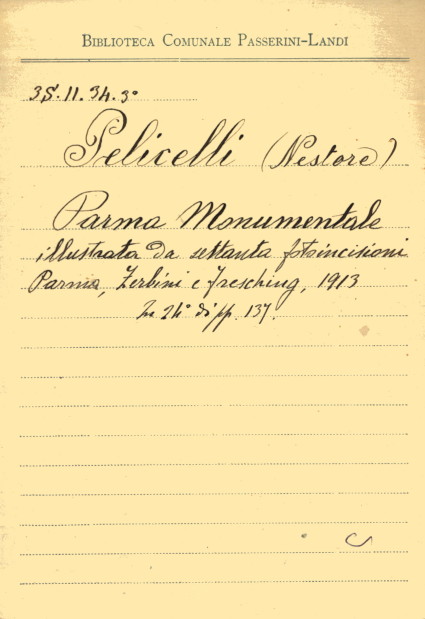 BIBLIOTECA COMUNALE PASSERINI-LANDI
3S.11.34.3º
Pelicelli (Nestore)
Parma Monumentale
illustrata da settanta fotoincisioni
Parma, Zerbini e Fresching, 1913
In 24º di pp. 137.